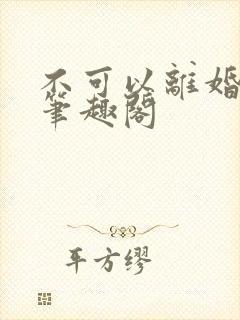 不可以離婚
筆趣閣
平方缪